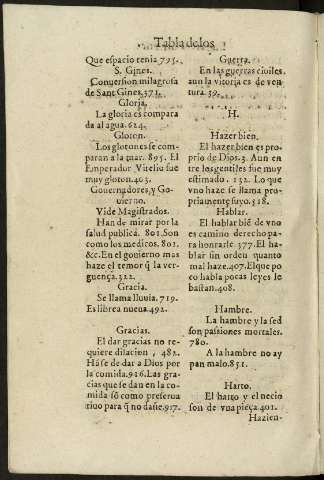 Tabla de los
Que espacio tenia 795.
S. Gines.
Conuersion milagrosa
de Sant Gines. 573.
Gloria.
La gloria es compara
da al agua. 624.
Gloton.
Los glotones se com-
paran a la mar. 895. El
Emperador Vitelio fue
muy gloton. 405.
Gouernadores, y Go-
uierno.
Vide Magistrados.
Han de mirar por la
salud publica. 801. Son
como los medicos. 801.
&c. En el gouierno mas
haze el temor q̃ la ver-
guença. 322.
Gracia.
Se llama lluuia. 719.
Es librea nueua. 492.
Gracias.
El dar gracias no re-
quiere dilacion, 482.
Hase de dar a Dios por
la comida. 916. Las gra-
cias que se dan en la co-
mida sõ como preserua
tiuo para q̃ no dañe. 917.
Guerra.
En las guerras ciuiles
aun la vitoria es de ven-
tura. 39.
H.
Hazer bien.
El hazer bien es pro-
prio de Dios. 3. Aun en
tre los gentiles fue muy
estimado. 132. Lo que
vno haze se llama pro-
priamente suyo. 518.
Hablar.
El hablar biẽ de vno
es camino derecho pa-
ra honrarle 377. El ha-
blar sin orden quanto
mal haze. 407. El que po
co habla pocas leyes le
bastan. 408.
Hambre.
La hambre y la sed
son passiones mortales.
780.
A la hambre no ay
pan malo. 851.
Harto.
El harto y el necio
son de vna pieça. 401.
Hazien-